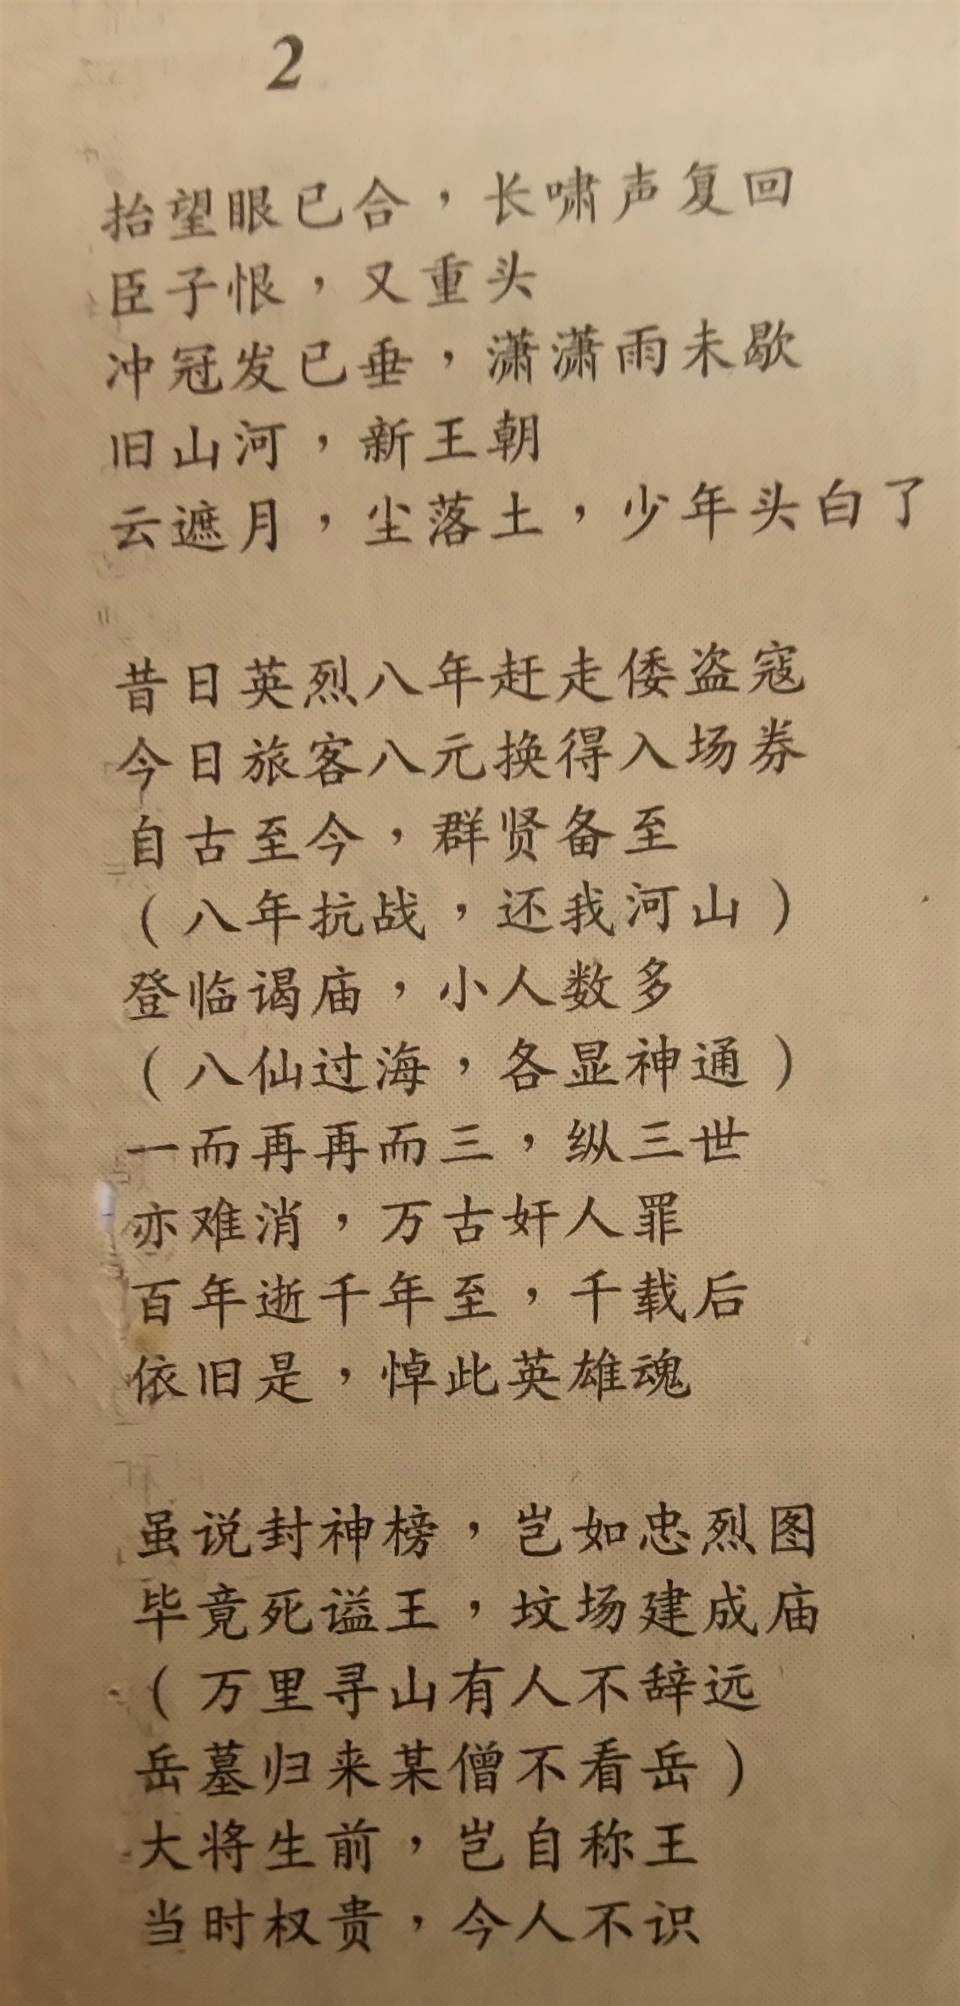 2
抬望眼已合，长啸声复回
臣子恨，又重头
冲冠发已垂，潇潇雨未歇
旧山河，新王朝
云遮月，尘落土，少年头白了
昔日英烈八年赶走倭盗寇
今日旅客八元换得入场券
自古至今，群贤备至
（八年抗战，还我河山）
登临谒庙，小人数多
（八仙过海，各显神通）
一而再再而三，纵三世
亦难消，万古奸人罪
百年逝千年至，千载后
依旧是，悼此英雄魂
虽说封神榜，岂如忠烈图
毕竟死谥王，坟场建成庙
（万里寻山有人不辞远
岳墓归来某僧不看岳）
大将生前，岂自称王
当时权贵，今人不识